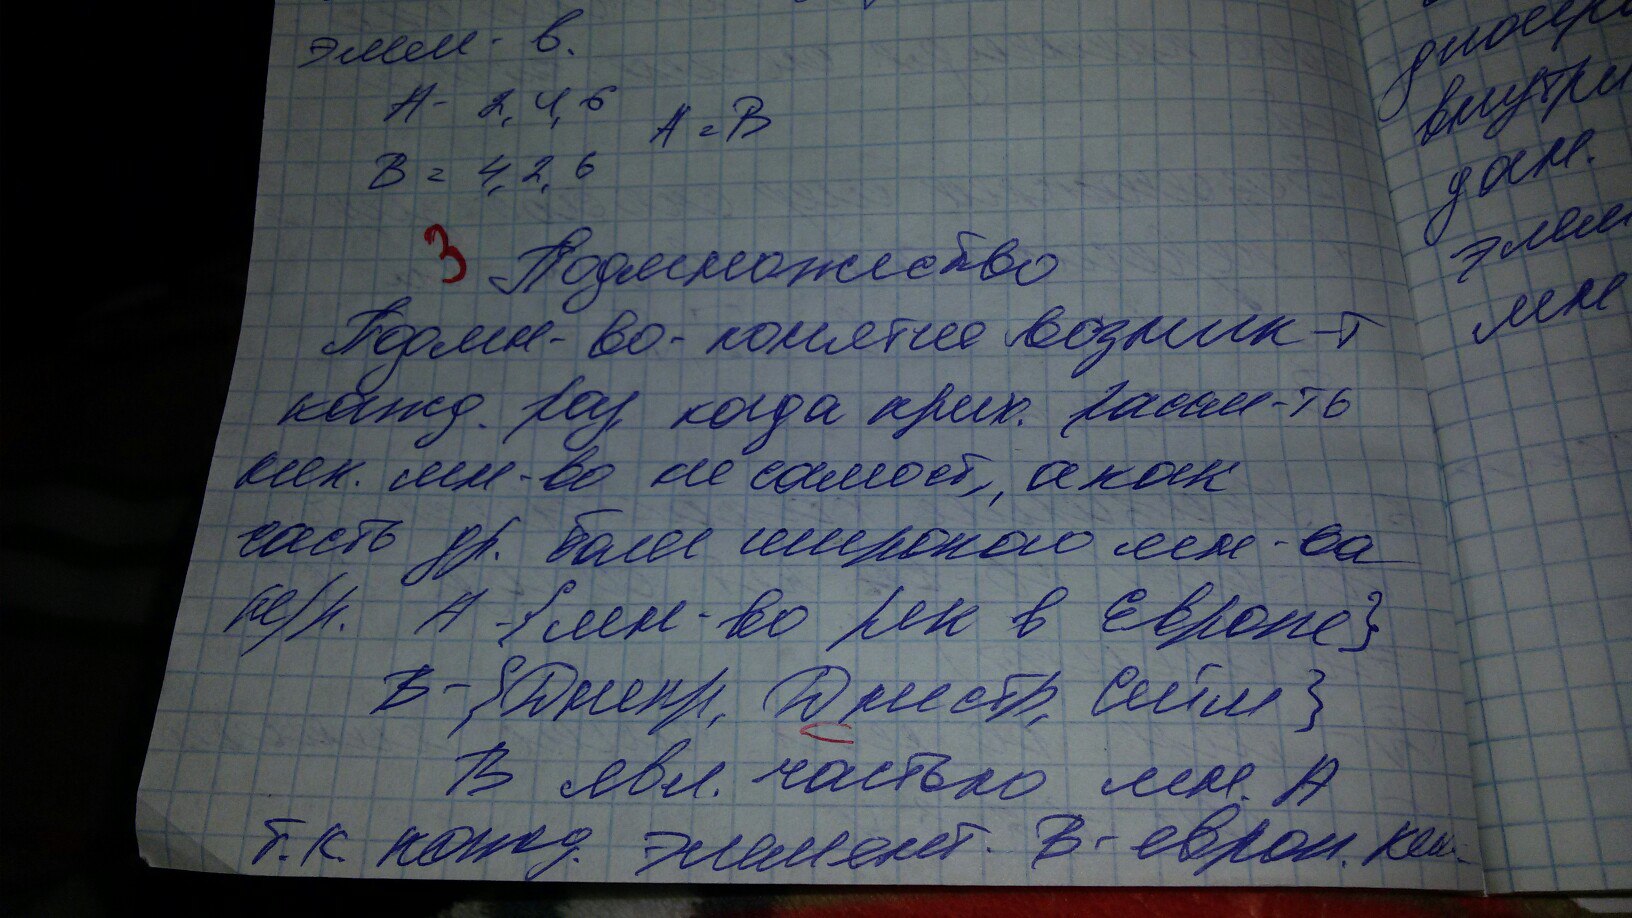 элем-в.
A- 2,4,6
A=B
B= 4,2,6
3 Подмножество
Подмн-во-понятие возник-т
кажд. раз, когда прих. рассм-ть
нек. мн-во не самост., а как
часть др. более широкого мн-ва
A-{мн-во рек в Европе}
B-{Днепр, Днестр, Сейм}
B явл. частью мн. A
т.к. кажд. элемент. B- европ.
внутри
дан.
элем
мн